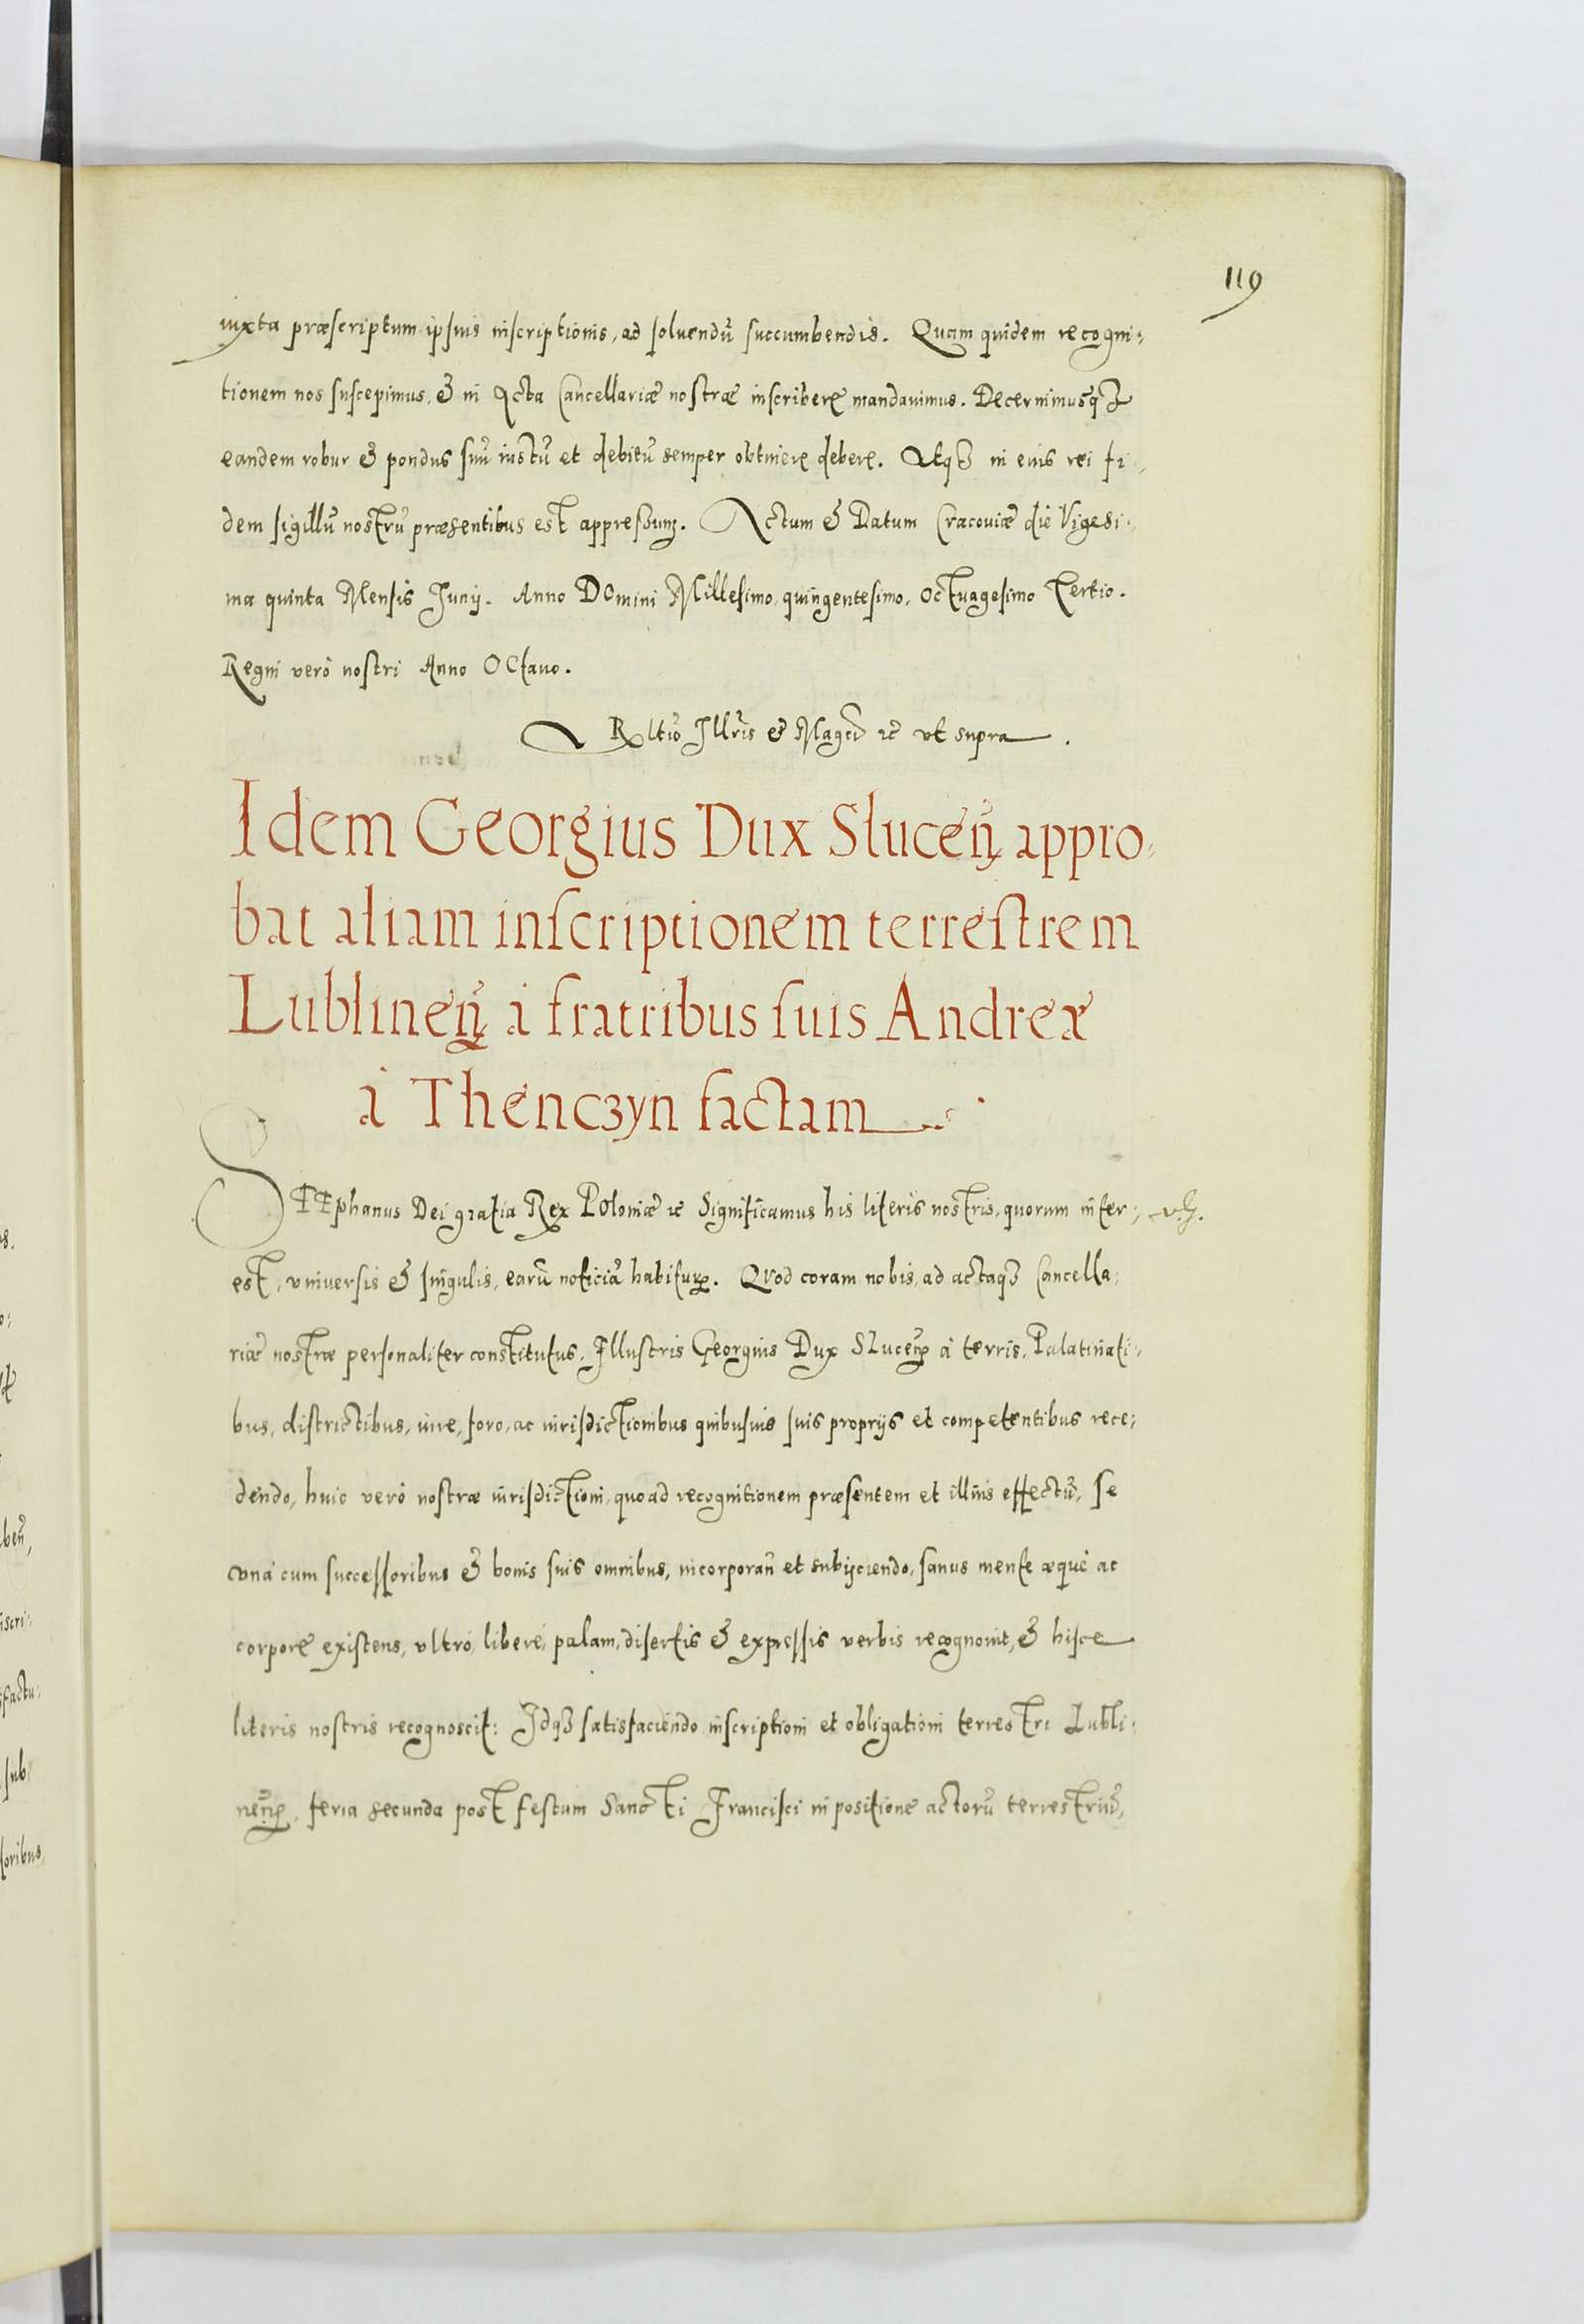 119
iuxta præscriptum ipsius inscriptionis, ad soluendũ succumbendis. Quam quidem recogni-
tionem nos suscepimus, & in Acta Cancellariæ nostræ inscribere mandauimus. Decernimusq3
eandem robur & pondus suũ iustũ et debitũ semper obtinere debere. Atq3 in euis rei fi-
dem sigillũ nostrũ præsentibus est appressum. Actum & Datum Cracouiæ die Vigesi-
ma quinta Mensis Junij. Anno DOmini Millesimo, quingentesimo, Octuagesimo Tertio.
Regni verò nostri Anno OCtauo.
Rltio Illris & Magci &c vt supra.
Idem Georgius Dux Sluceñ appro-
bat aliam inscriptionem terrestrem
Lublineñ à fratribus suis Andrea
à Thenczyn factam
STEphanus Dei gratia Rex Poloniæ &c Significamus his literis nostris, quorum inter-
est, vniuersis & singulis, earũ noticiã habituris. Quod coram nobis, ad actaq3 Cancella-
riæ nostræ personaliter constitutus, Illustris Georgius Dux Sluceñ à terris, Palatinati-
bus, districtibus, iure, foro, ac iurisdictionibus quibusuis suis proprijs et competentibus rece-
dendo, huic verò nostræ iurisdictioni, quoad recognitionem præsentem et illius effectũ, se
vnà cum successoribus & bonis suis omnibus, incorporañ et subijciendo, sanus mente æquè ac
corpore existens, vltrò, liberè, palam, disertis & expressis verbis recognouit, & hisce
literis nostris recognoscit: Idq3 satisfaciendo inscriptioni et obligationi terrestri Lubli-
neñ, feria secunda post festum Sancti Francisci in positione actorũ terrestriũ,